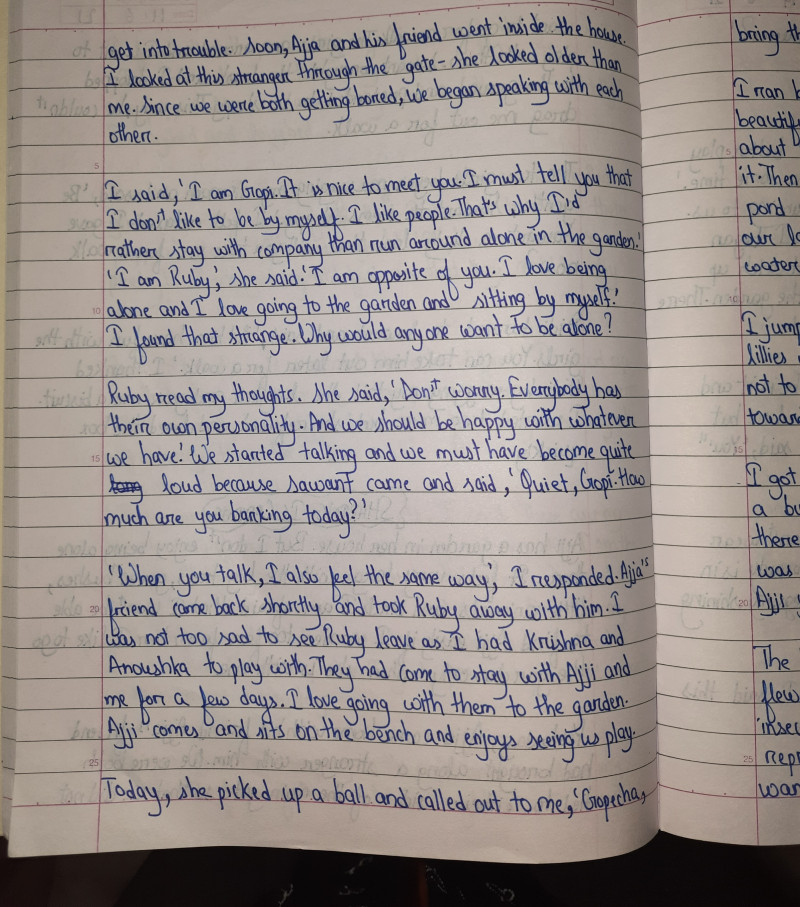 get into trouble. Soon, Ajja and his friend went inside the house.
I looked at this stranger through the gate - she looked older than
me. Since we were both getting bored, we began speaking with each
other.
5
I said, 'I am Gopi. It is nice to meet you. I must tell you that
I don't like to be by myself. I like people. That's why I'd
rather stay with company than run around alone in the garden.'
'I am Ruby', she said. 'I am opposite of you. I love being
10 alone and I love going to the garden and sitting by myself.'
I found that strange. Why would anyone want to be alone?
Ruby read my thoughts. She said, 'Don't worry. Everybody has
their own personality. And we should be happy with whatever
15 we have.' We started talking and we must have become quite
loud because Sawant came and said, 'Quiet, Gopi. How
much are you barking today?'
'When you talk, I also feel the same way, I responded. Ajja's
20 friend came back shortly and took Ruby away with him. I
was not too sad to see Ruby leave as I had Krishna and
Anoushka to play with. They had come to stay with Ajji and
me for a few days. I love going with them to the garden.
Ajji comes and sits on the bench and enjoys seeing us play.
25
Today, she picked up a ball and called out to me, 'Gopecha,
bring th
I ran b
beautif
about
it. Then
pond
our l
water
I jump
lillies
not to
towar
I got
a bu
there
was
20 Ajji
The
flew
insec
25 repr
wan